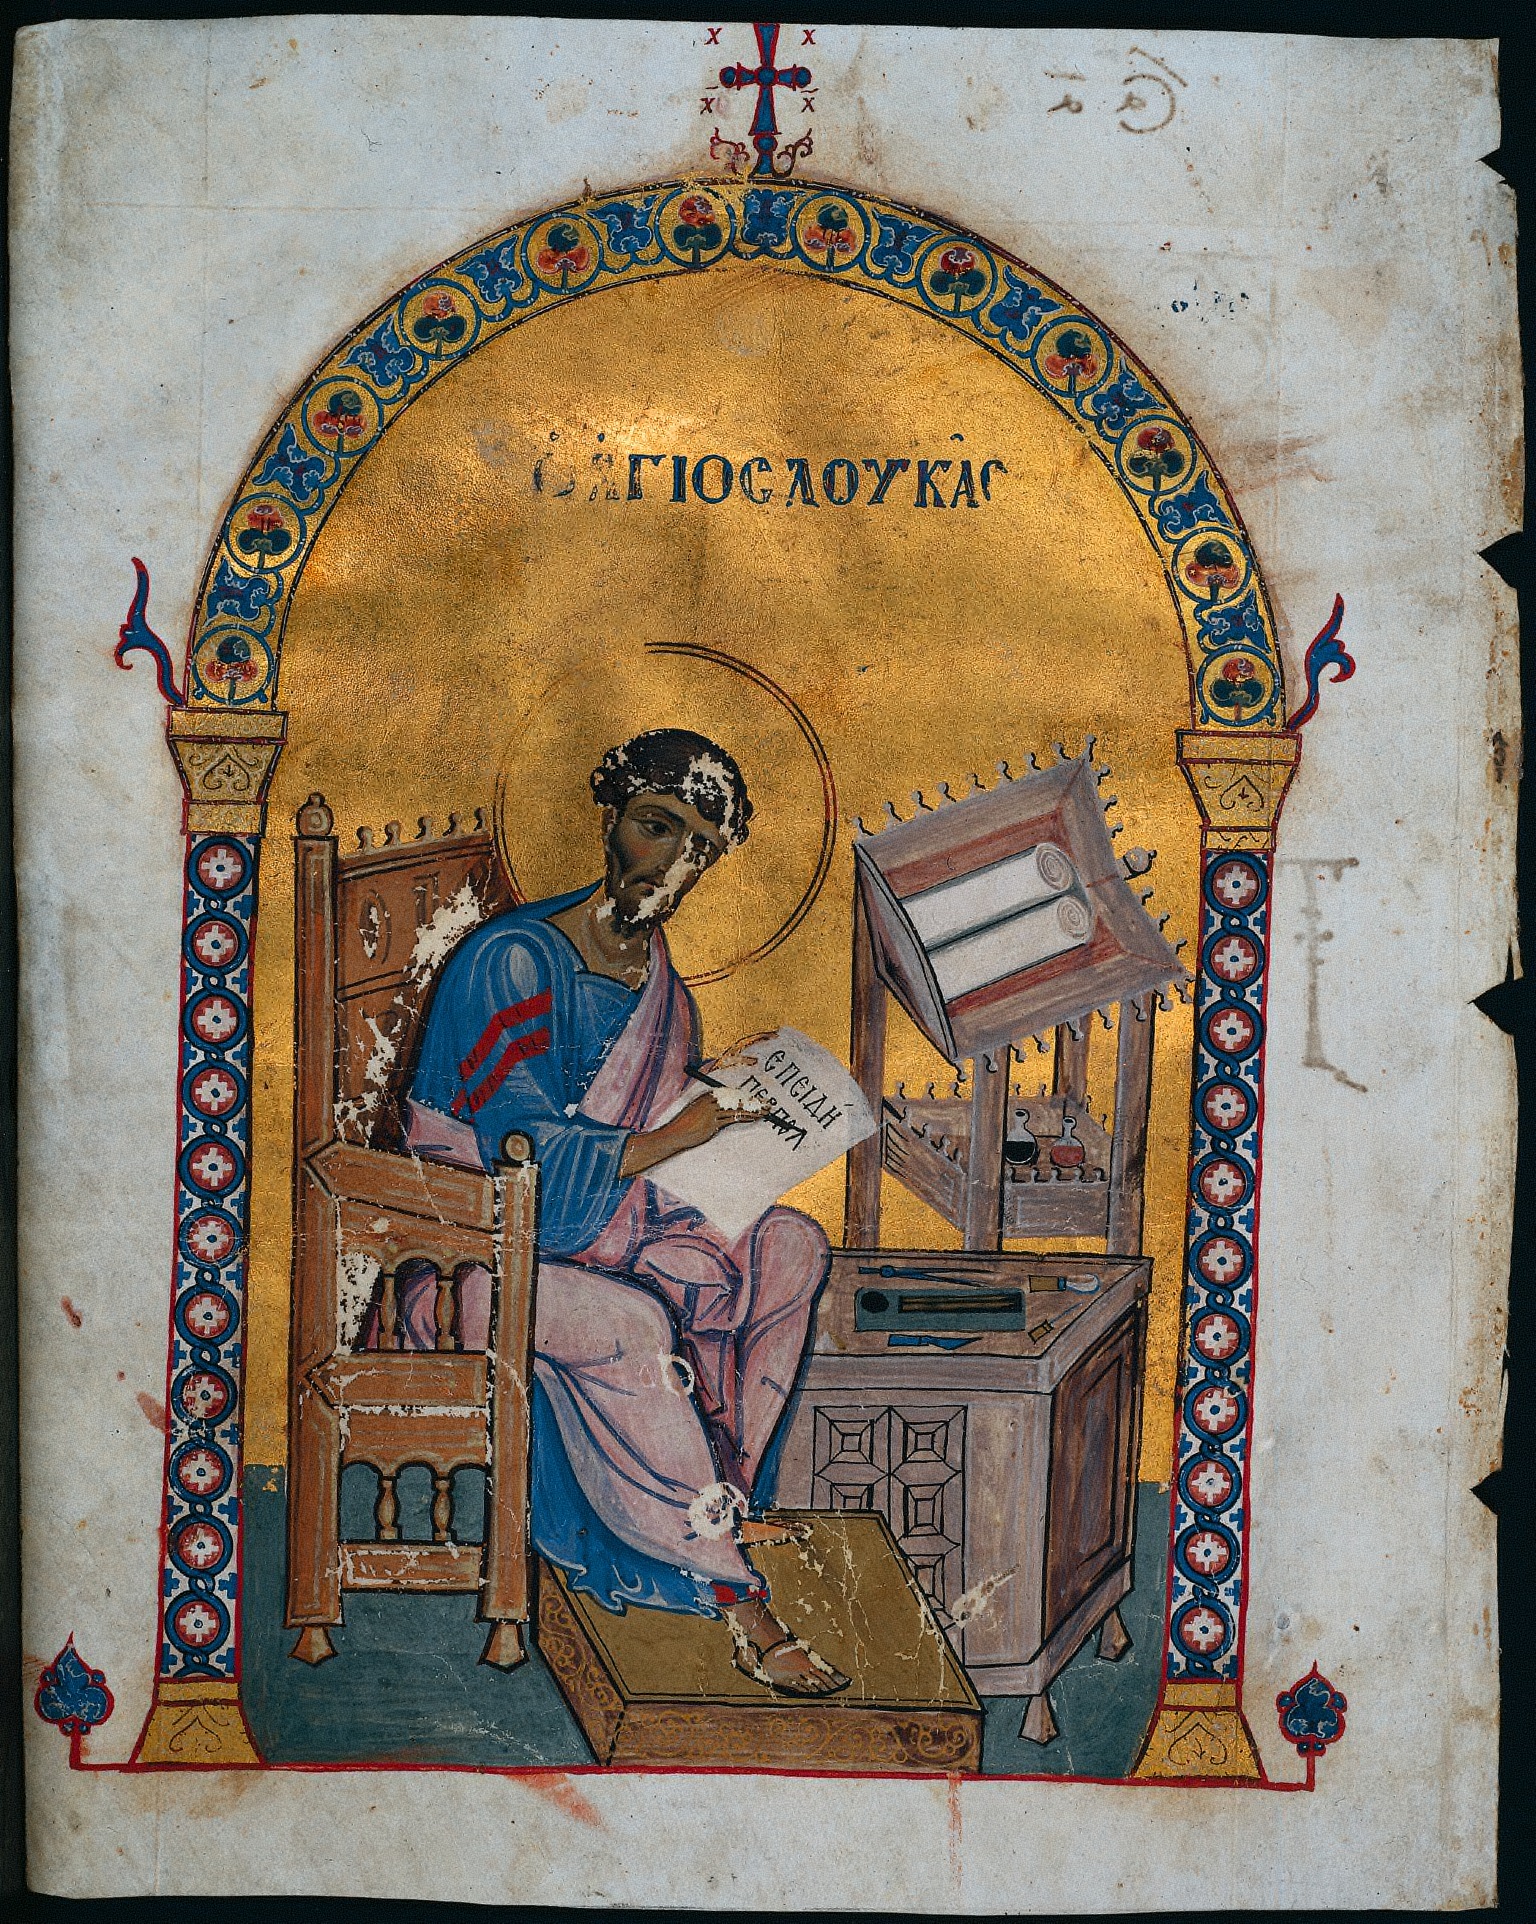 Χ Χ
Χ̄ Χ̄
Ὁ ἍΓΙΟΣ ΛΟΥΚΑΣ
ΕΠΕΙΔΗ
ΠΕΡ ΠΟΛ